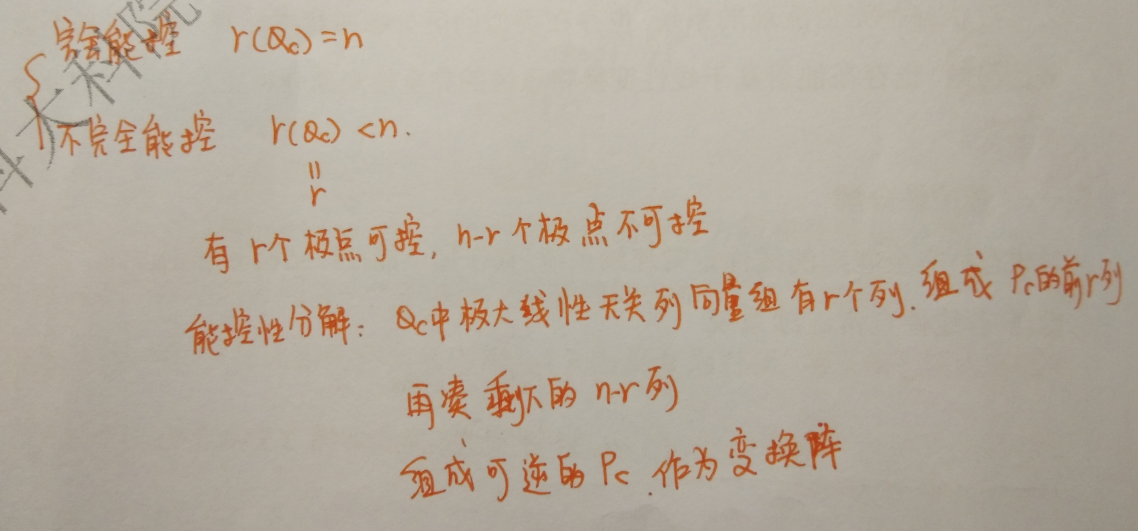 完全能控 r(Qc)=n
不完全能控 r(Qc)<n.
=
r
有r个极点可控, n-r个极点不可控
能控性分解: Qc中极大线性无关列向量组有r个列. 组成Pc的前r列
再凑剩下的n-r列
组成可逆的Pc.作为变换阵